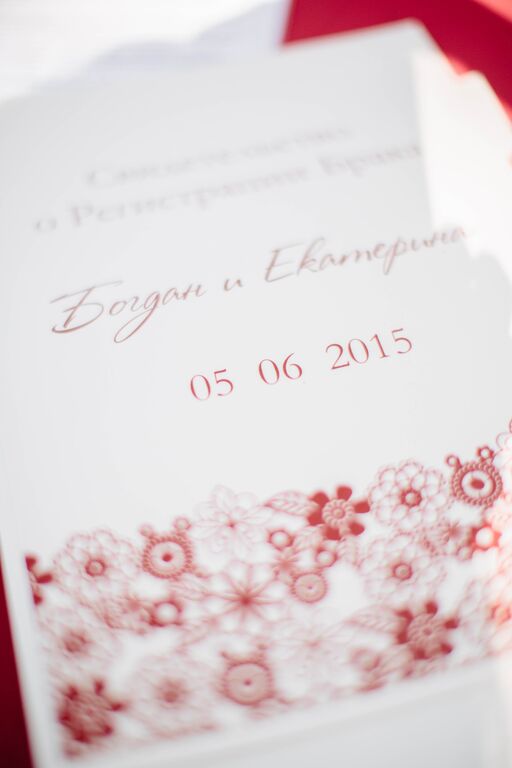 Свидетельство
о Регистрации Брака
Богдан и Екатерина
05 06 2015